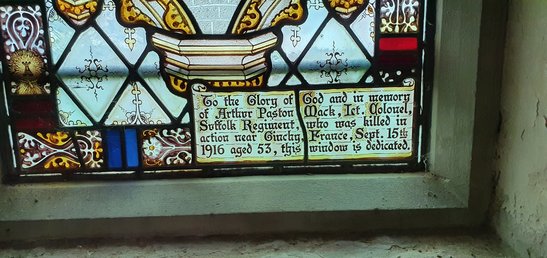 To the Glory of God and in memory
of Arthur Paston Mack, Lt. Colonel,
Suffolk Regiment, who was killed in
action near Ginchy, France, Sept. 15th
1916 aged 53, this window is dedicated.